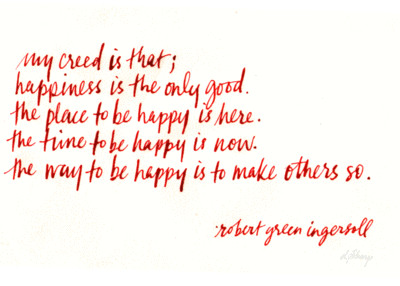 my creed is that;
happiness is the only good.
the place to be happy is here.
the time to be happy is now.
the way to be happy is to make others so.
robert green ingersoll